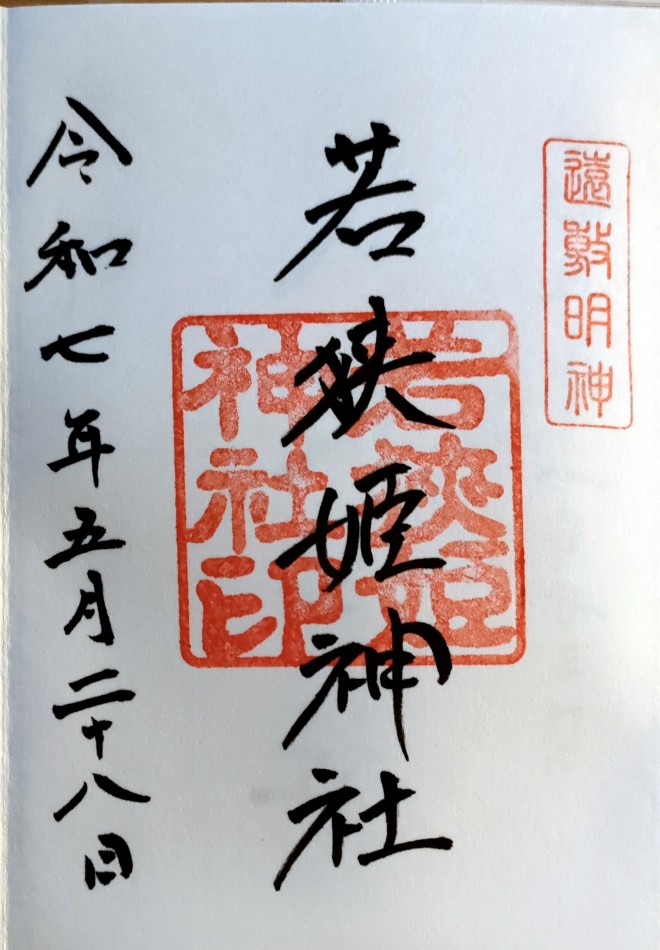 遠敷明神
若狭姫神社
若狭姫
神社印
令和七年五月二十八日